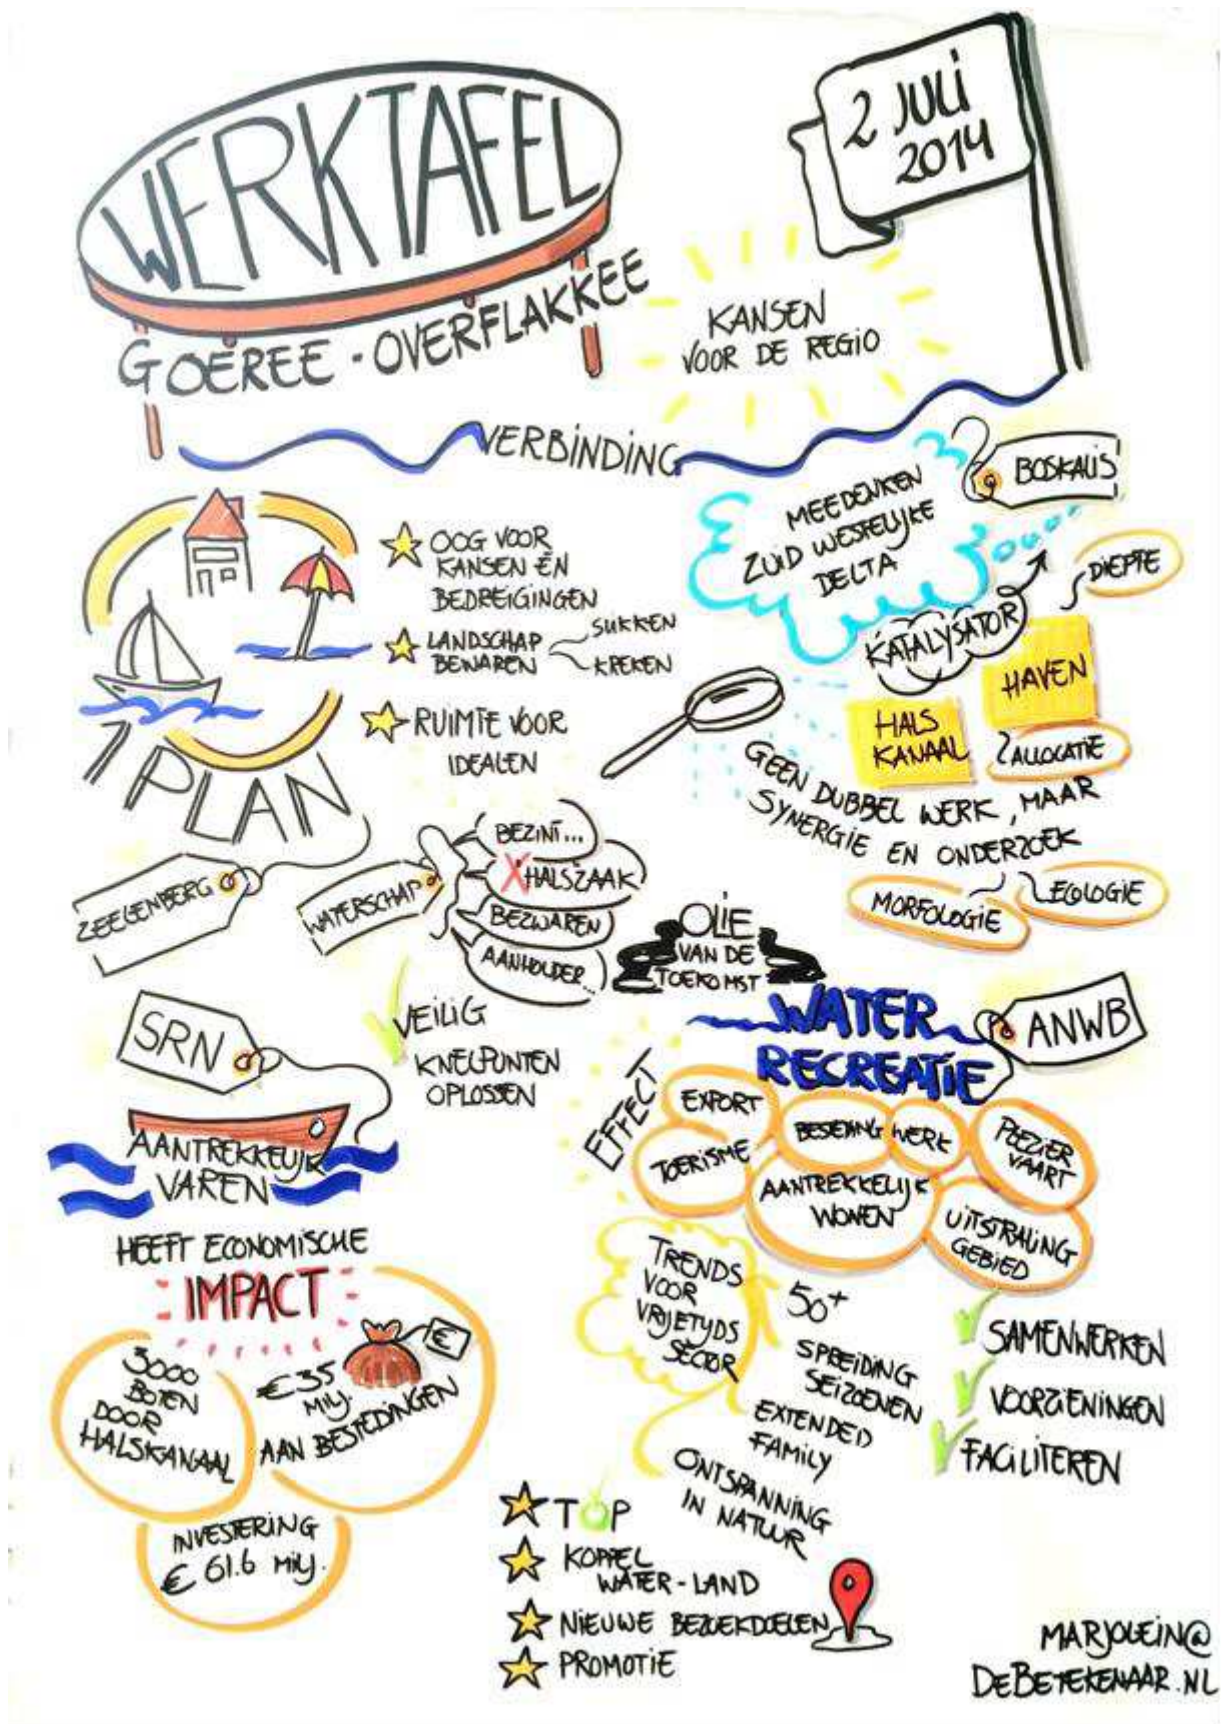 WERKTAFEL
GOEREE-OVERFLAKKEE
2 JULI
2014
KANSEN
VOOR DE REGIO
VERBINDING
OOG VOOR
KANSEN EN
BEDREIGINGEN
LANDSCHAP
BEWAREN
SLIKKEN
KREKEN
RUIMTE VOOR
IDEALEN
1 PLAN
ZEELENBERG
WATERSCHAP
BEZINT...
X HALSZAAK
BEZWAREN
AANHOUDER...
VEILIG
KNELPUNTEN
OPLOSSEN
BOSKALIS
MEEDENKEN
ZUID WESTELIJKE
DELTA
KATALYSATOR
DIEPTE
HAVEN
HALS
KANAAL
ALLOCATIE
GEEN DUBBEL WERK, MAAR
SYNERGIE EN ONDERZOEK
MORFOLOGIE
ECOLOGIE
OLIE
VAN DE
TOEKOMST
SRN
AANTREKKELIJK
VAREN
HEEFT ECONOMISCHE
IMPACT
3000
BOTEN
DOOR
HALSKANAAL
€35
MILJ.
AAN BESTEDINGEN
€
INVESTERING
€ 61.6 MILJ.
WATER
RECREATIE
ANWB
EFFECT
EXPORT
TOERISME
BESTEDING
WERK
PLEZIER
VAART
AANTREKKELIJK
WONEN
UITSTRALING
GEBIED
TRENDS
VOOR
VRIJETIJDS
SECTOR
50+
SPREIDING
SEIZOENEN
EXTENDED
FAMILY
ONTSPANNING
IN NATUUR
SAMENWERKEN
VOORZIENINGEN
FACILITEREN
TOP
KOPPEL
WATER-LAND
NIEUWE BEZOEKDOELEN
PROMOTIE
MARJOLEIN@
DEBETEKENAAR.NL